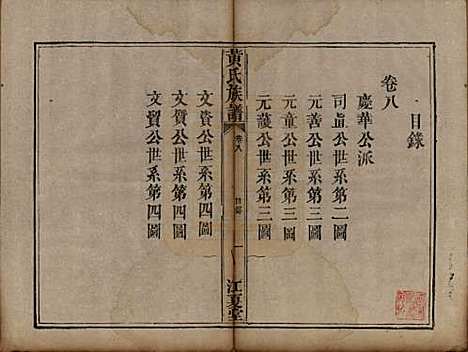 目錄
卷八
慶華公派
司直公世系第二圖
元善公世系第三圖
元童公世系第三圖
元護公世系第三圖
黃氏族譜
卷八
目錄
一
江夏堂
文貴公世系第四圖
文質公世系第四圖
文貿公世系第四圖